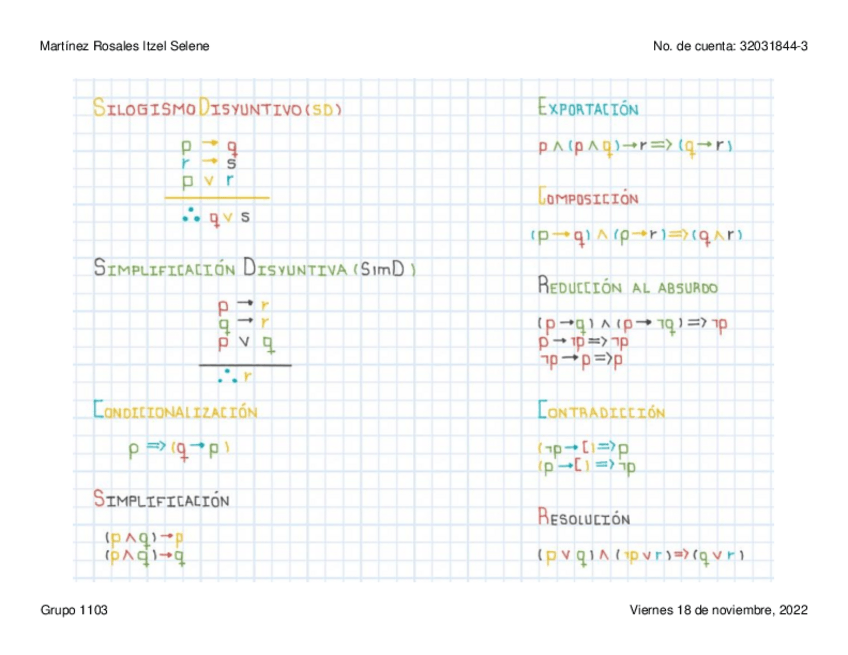 Martínez Rosales Itzel Selene
No. de cuenta: 32031844-3
SILOGISMO DISYUNTIVO (SD)
p → q
r → s
p ∨ r
∴ q ∨ s
SIMPLIFICACIÓN DISYUNTIVA (SimD)
p → r
q → r
p ∨ q
∴ r
CONDICIONALIZACIÓN
p => (q → p)
SIMPLIFICACIÓN
(p ∧ q) → p
(p ∧ q) → q
EXPORTACIÓN
p ∧ (p ∧ q) → r => (q → r)
COMPOSICIÓN
(p → q) ∧ (p → r) => (q ∧ r)
REDUCCIÓN AL ABSURDO
(p → q) ∧ (p → ¬q) => ¬p
p → ¬p => ¬p
¬p → p => p
CONTRADICCIÓN
(¬p → [) => p
(p → [) => ¬p
RESOLUCIÓN
(p ∨ q) ∧ (¬p ∨ r) => (q ∨ r)
Grupo 1103
Viernes 18 de noviembre, 2022